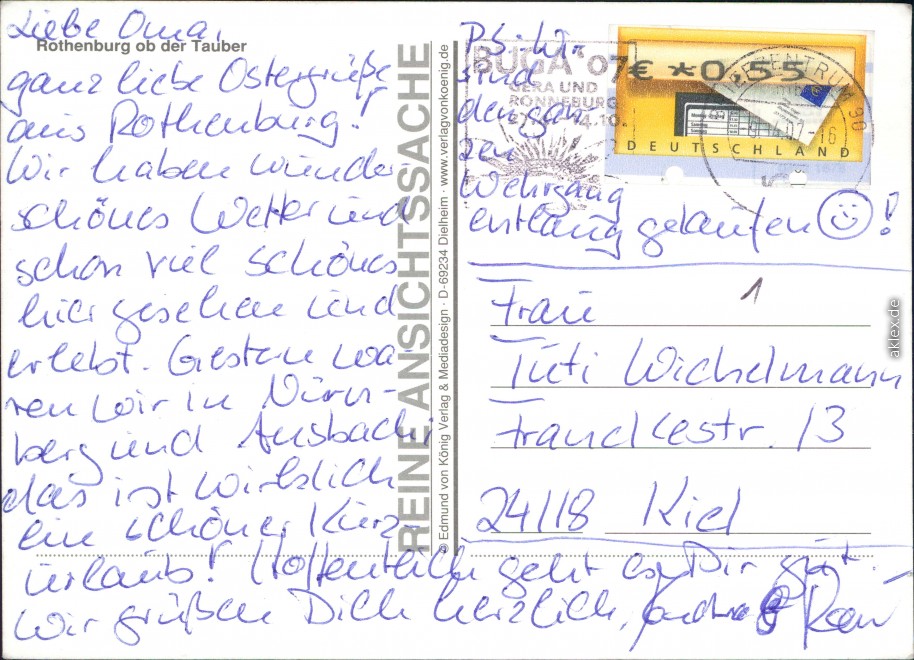 Liebe Oma,
Rothenburg ob der Tauber
ganz liebe Ostergrüße
aus Rothenburg!
Wir haben wunder-
schönes Wetter und
schon viel schönes
hier gesehen und
erlebt. Gestern wa-
ren wir in Nürn-
berg und Ansbach,
das ist wirklich
ein schöner Kurz-
urlaub! Hoffentlich geht es Dir gut.
Wir grüßen Dich herzlich,
REINE ANSICHTSSACHE
© Edmund von König Verlag & Mediadesign · D-69234 Dielheim · www.verlagvonkoenig.de
P.S.: Wir
sind
den gan
zen
Wehrgang
entlang gelaufen !
BUGA 07
GERA UND
RONNEBURG
€ *0,55
DEUTSCHLAND
BRIEFZENTRUM 90
1
Frau
Tuti Wichelmann
Franckestr. 13
24118 Kiel
aklex.de